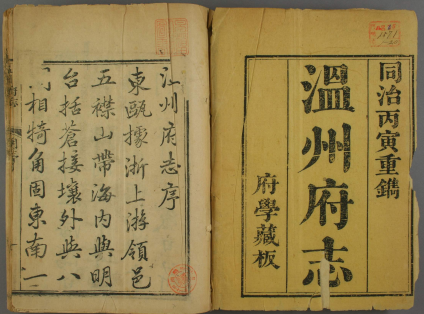 同治丙寅重鐫
溫州府志
府學藏板
溫州府志序
東甌據浙上游領邑
五襟山帶海內與明
台括蒼接壤外與八
相犄角固東南一